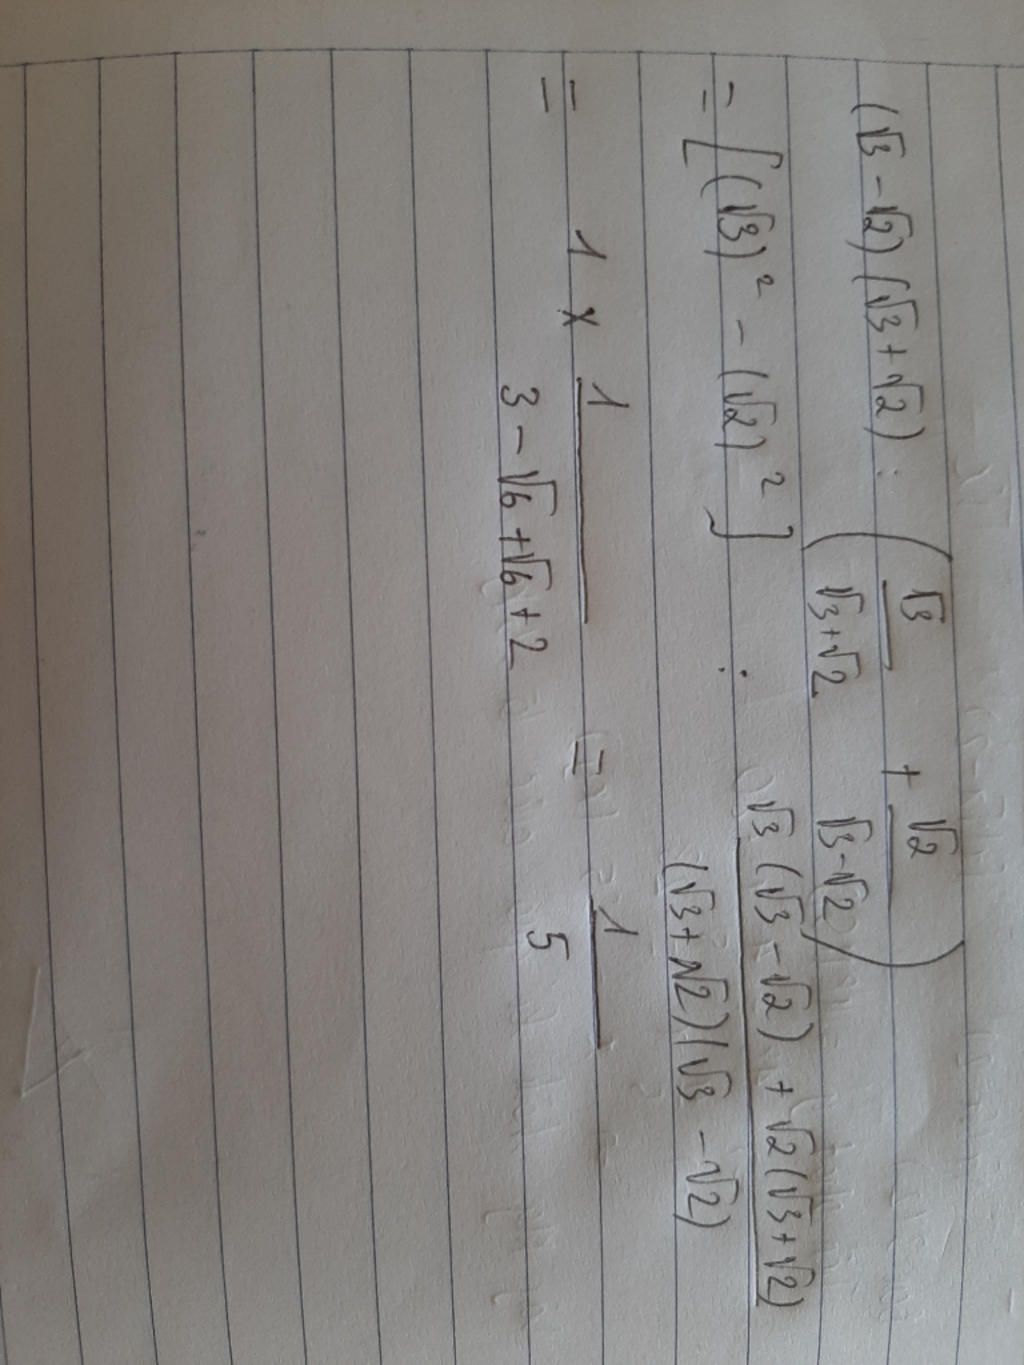 (√3 - √2) (√3 + √2) : ( √3/(√3+√2) + √2/(√3-√2) )
= [(√3)² - (√2)²] : (√3 (√3 - √2) + √2(√3+√2))/((√3+√2)(√3 - √2))
= 1 × 1/(3 - √6 + √6 + 2) = 1/5